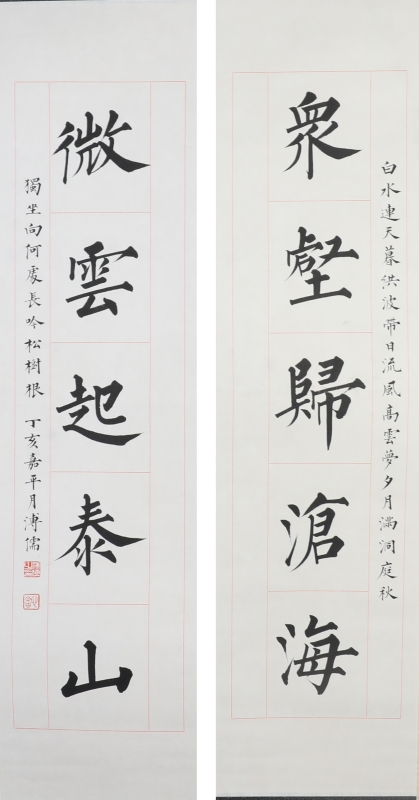 白水連天暮洪波帶日流風高雲夢夕月滿洞庭秋
衆壑歸滄海
微雲起泰山
獨坐向何處長吟松樹根 丁亥嘉平月溥儒